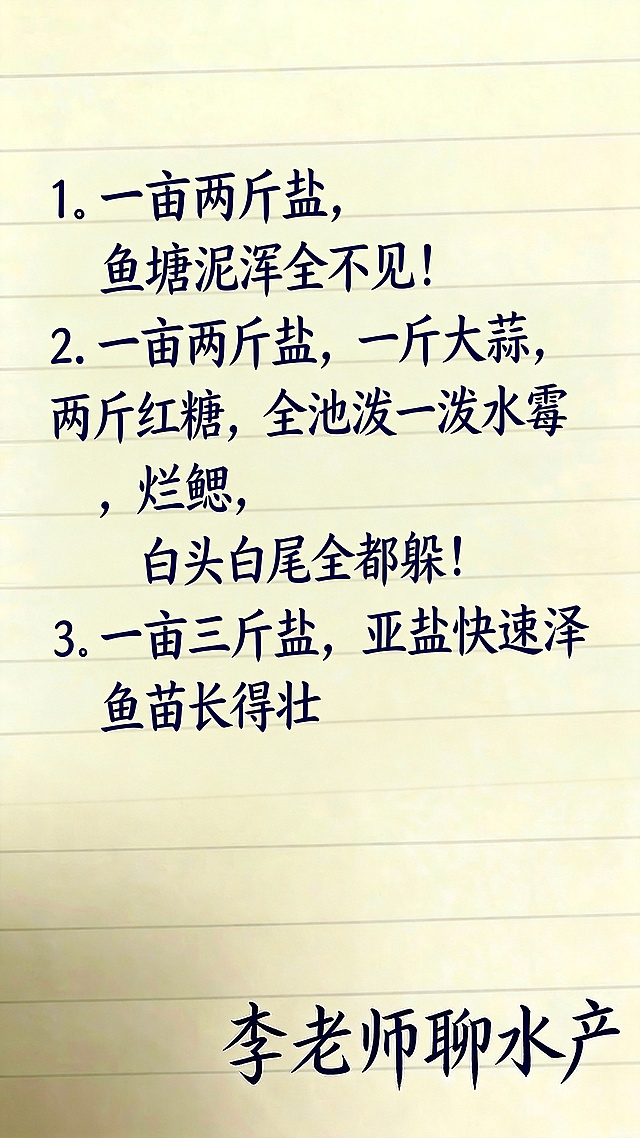 1。一亩两斤盐，
鱼塘泥浑全不见！
2.一亩两斤盐，一斤大蒜，
两斤红糖，全池泼一泼水霉
，烂鳃，
白头白尾全都躲！
3。一亩三斤盐，亚盐快速泽
鱼苗长得壮
李老师聊水产